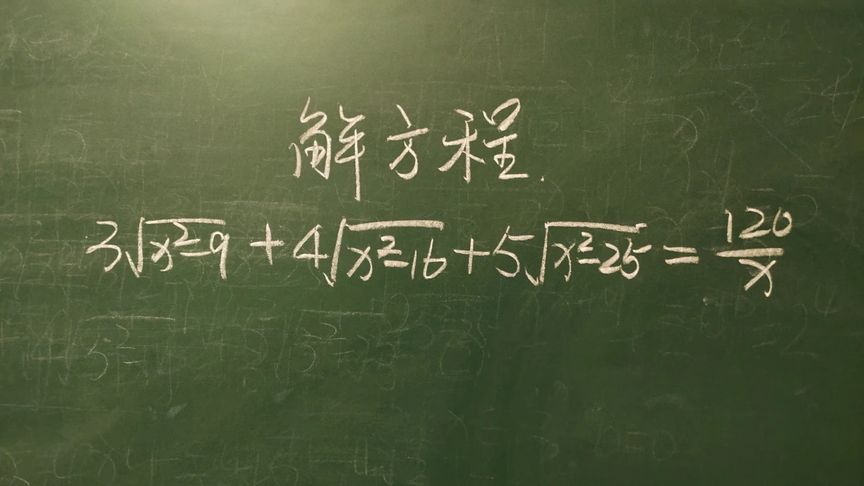 解方程.
3√(x²-9) + 4√(x²-16) + 5√(x²-25) = 120/x